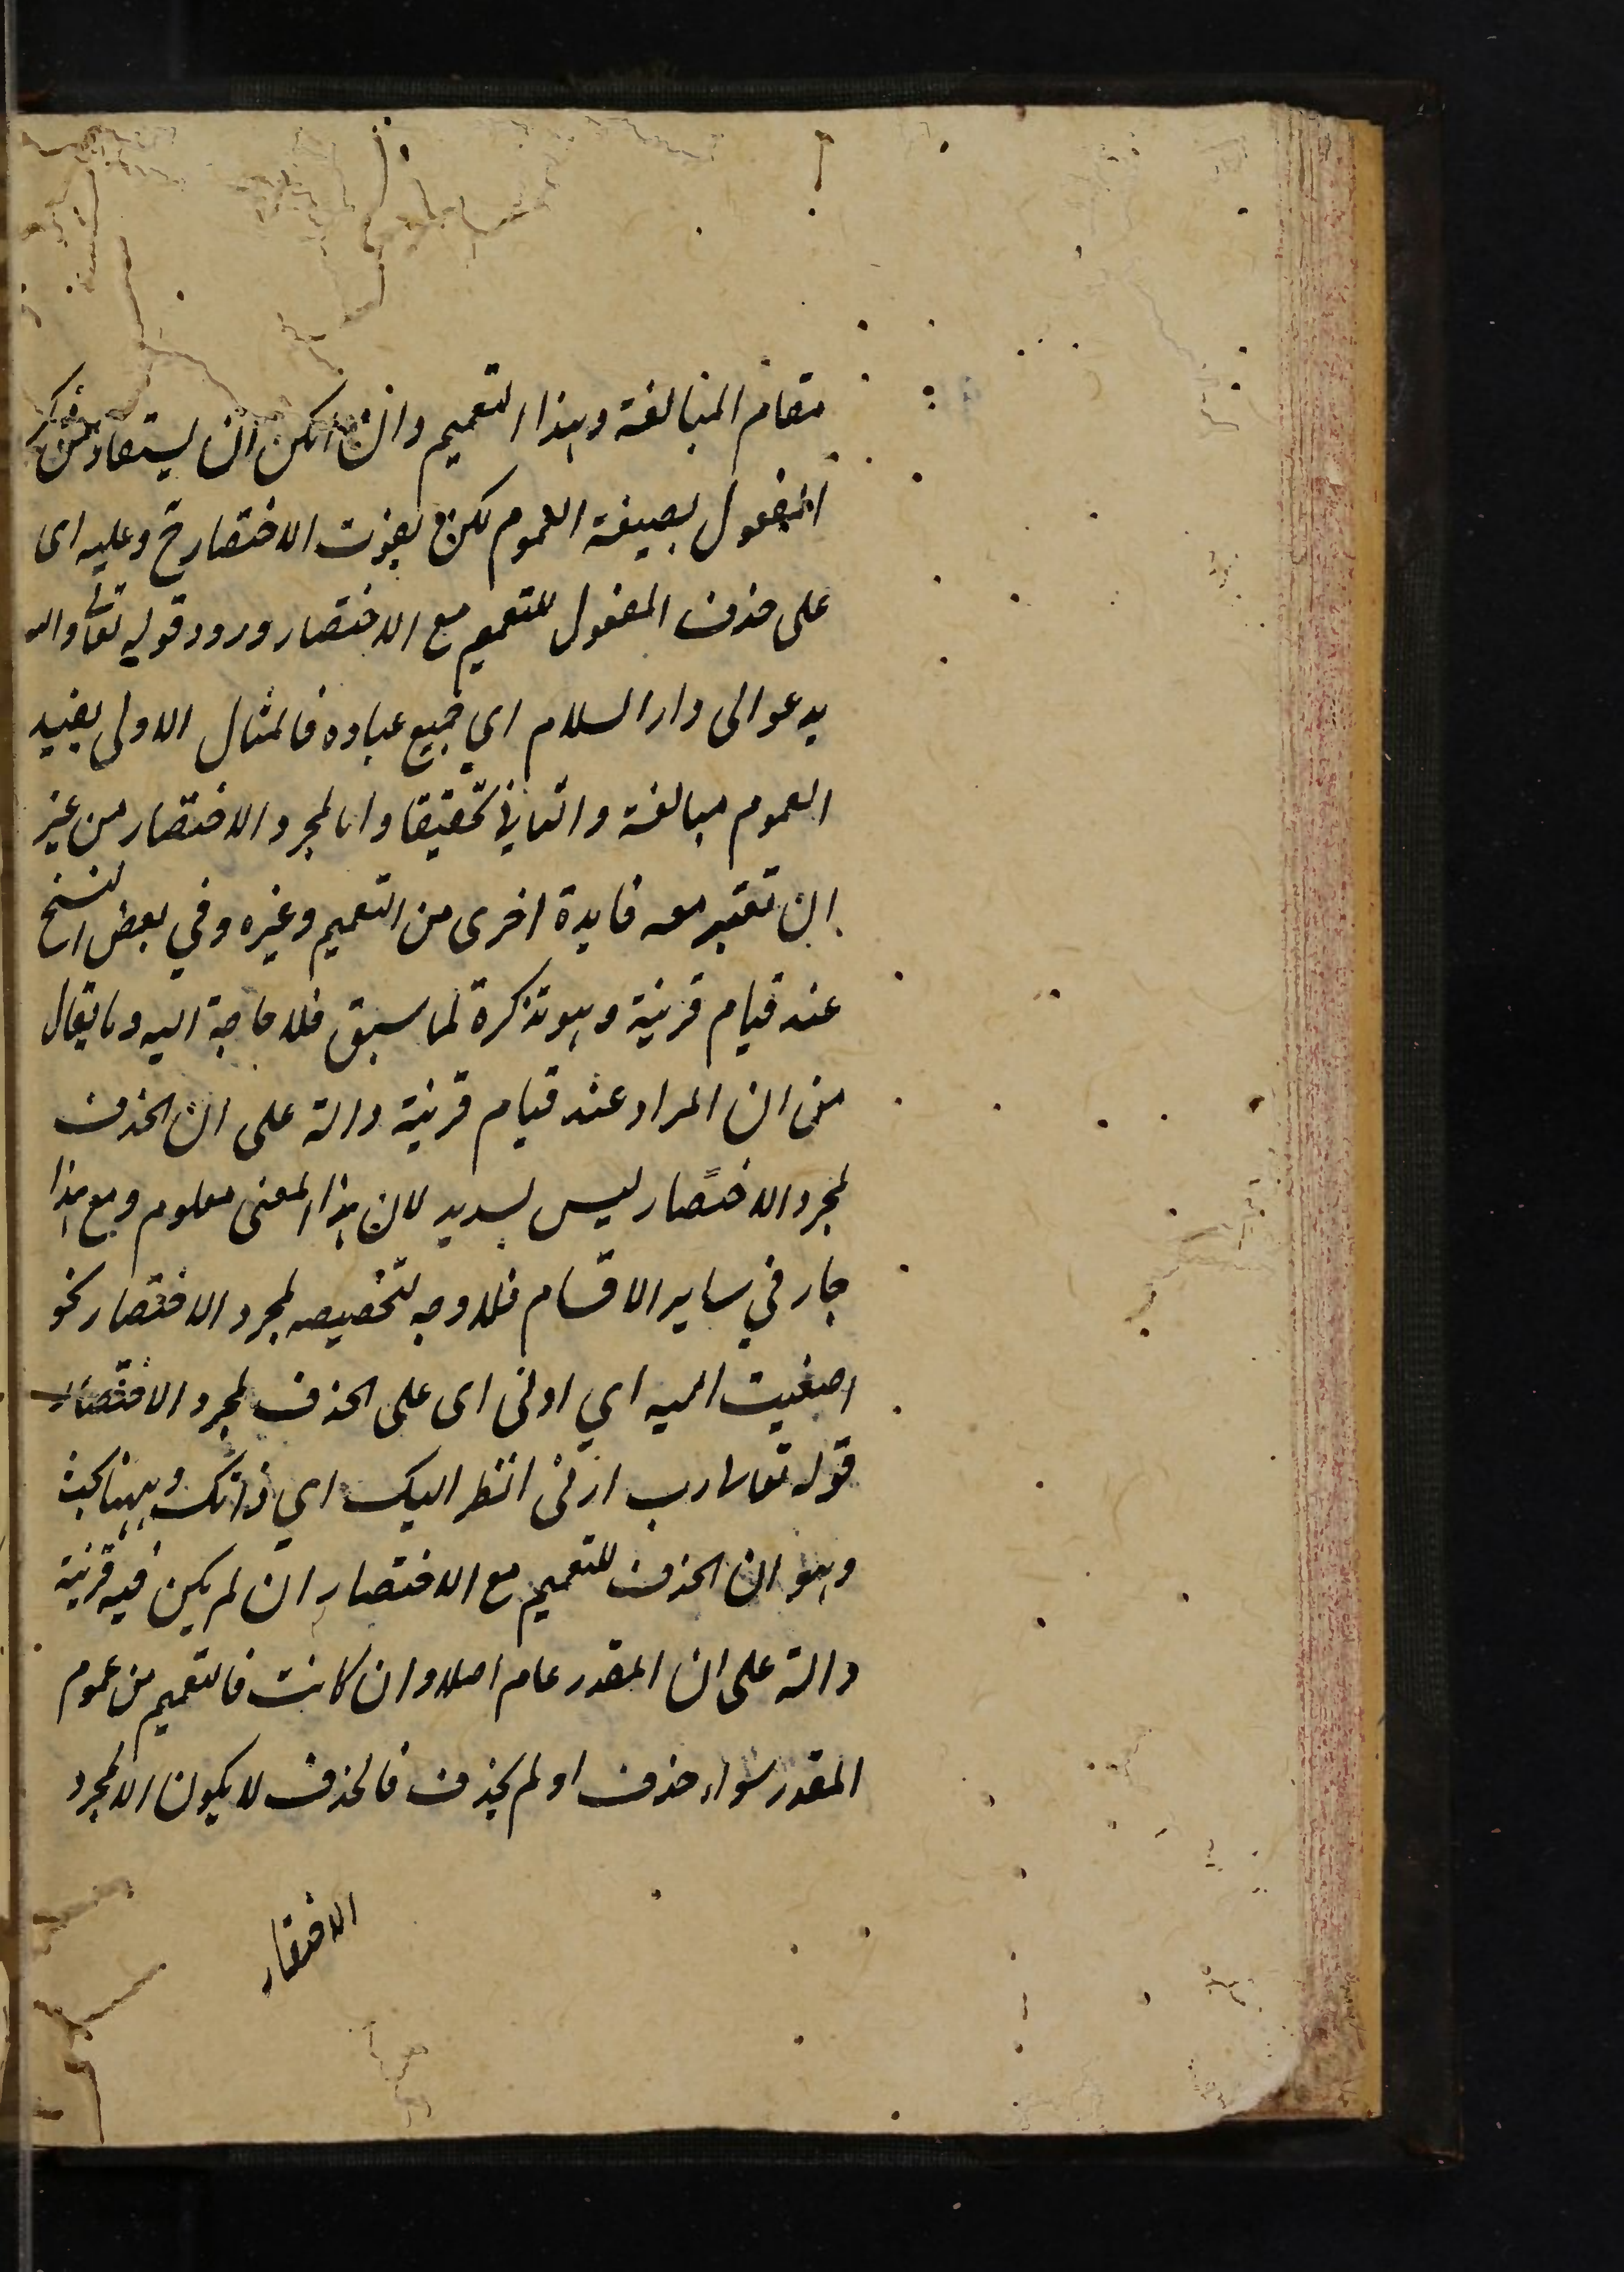 مقام المبالغة وهذا التعميم وان امكن ان يستفاد من ذكر
المفعول بصيغة العموم لكن يفوت الاختصار ح وعليه اى
على حذف المفعول للتعميم مع الاختصار ورود قوله تعالى والله
يدعو الى دار السلام اي جميع عباده فالمثال الاولى يفيد
العموم مبالغة والثاني تحقيقا واما لمجرد الاختصار من غير
ان تعتبر معه فايدة اخرى من التعميم وغيره وفي بعض النسخ
عند قيام قرينة وهو تذكرة لما سبق فلا حاجة اليه وما يقال
من ان المراد عند قيام قرينة دالة على ان الحذف
لمجرد الاختصار ليس بسديد لان هذا المعنى معلوم ومع هذا
جار في ساير الاقسام فلا وجه لتخصيصه لمجرد الاختصار نحو
اصغيت اليه اي اذنى اى على الحذف لمجرد الاختصار
قوله تعالى رب ارنى انظر اليك اي ذاتك وههنا بحث
وهو ان الحذف للتعميم مع الاختصار ان لم يكن فيه قرينة
دالة على ان المقدر عام اصلا وان كانت فالتعميم من عموم
المقدر سواء حذف او لم يحذف فالحذف لا يكون الا لمجرد
الاختصار